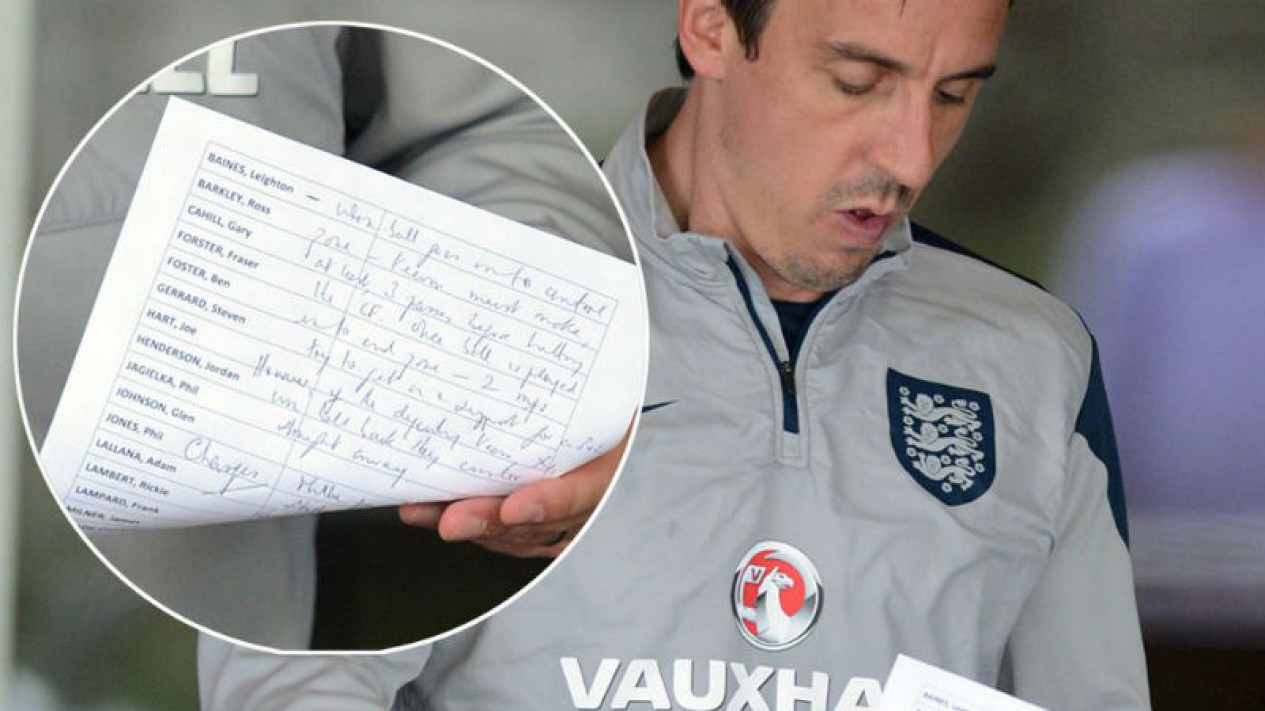 BAINES, Leighton
BARKLEY, Ross
CAHILL, Gary
FORSTER, Fraser
FOSTER, Ben
GERRARD, Steven
HART, Joe
HENDERSON, Jordan
JAGIELKA, Phil
JOHNSON, Glen
JONES, Phil
LALLANA, Adam
LAMBERT, Rickie
LAMPARD, Frank
MILNER, James
– When ball goes into centre
zone – team must make
at least 3 passes before hitting
the CF. Once ball is played
into end zone – 2 mfs
try to get in a support for a
However, if the defending team
win ball back they counter
straight away
V
VAUXHA
BAINES,